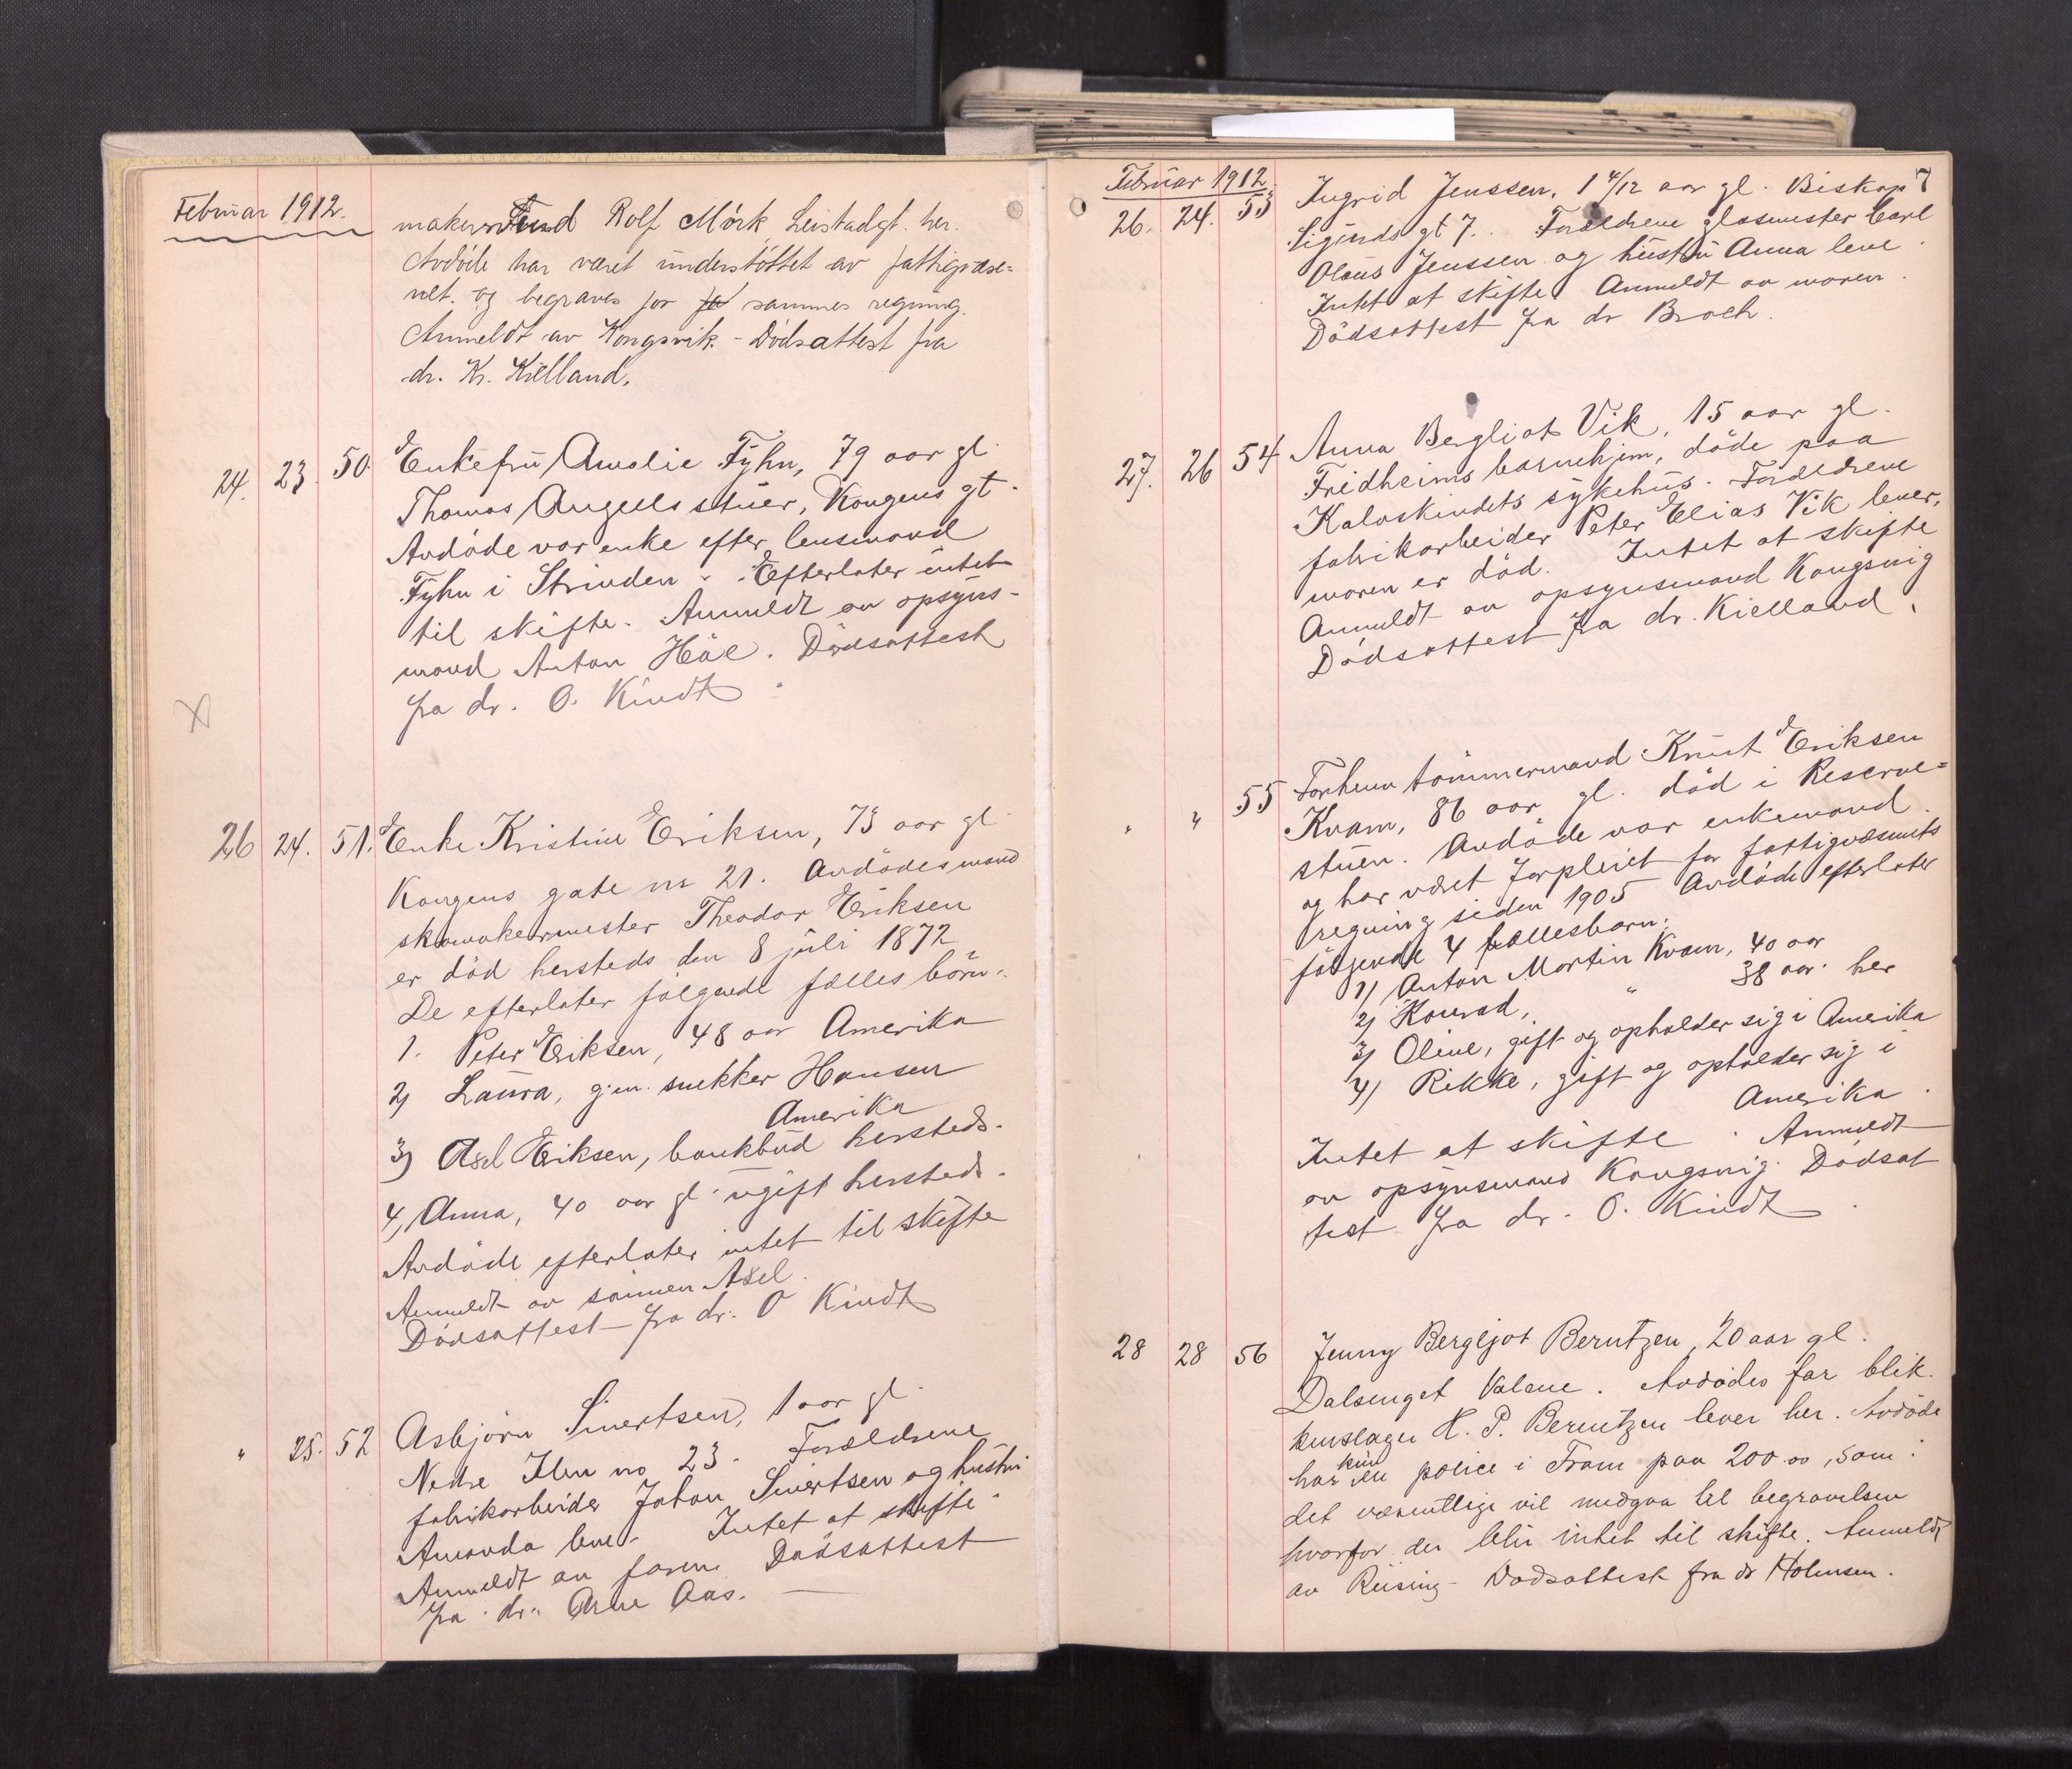 Februar 1912.
makersvend Rolf Mörk Leistadgt. her.
Avdöde har været understöttet av fattigvæse=
net. og begraves for sammes regning.
Anmeldt av Kongsvik - Dödsattest fra
dr. Kr. Kielland.
24. 23. 50. Enkefru Amalie Fyhn, 79 aar gl
Thomas Angells stuer, Kongens gt.
Avdöde var enke efter lensmand
Fyhn i Strinden. Efterlater intet
til skifte. Anmeldt av opsyns-
mand Anton Höe. Dödsattest
fra dr. O. Kindt
X
26 24. 51. Enke Kristine Eriksen, 73 aar gl.
Kongens gate nr 21. Avdödes mand
skomakermester Theodor Eriksen
er död hersteds den 8 juli 1872
De efterlater fölgende fælles börn:
1. Peter Eriksen, 48 aar Amerika
2) Laura, g.m. snekker Hansen
Amerika
3) Axel Eriksen, bankbud hersteds.
4) Anna, 40 aar gl. ugift hersteds.
Avdöde efterlater intet til skifte
Anmeldt av sönnen Axel.
Dödsattest fra dr. O Kindt
" 25. 52 Asbjörn Sivertsen, 1 aar gl.
Nedre Ilen no 23. Forældrene
fabrikarbeider Johan Sivertsen og hustru
Amanda lever. Intet at skifte.
Anmeldt av faren. Dödsattest
fra dr. Arne Aas.
Februar 1912. 7
26. 24. 53 Ingrid Jenssen, 1 4/12 aar gl. Biskop
Sigurds gt 7. Forældrene glasmester Carl
Olaus Jenssen og hustru Anna leve.
Intet at skifte. Anmeldt av moren.
Dödsattest fra dr Broch.
27. 26 54 Anna Bergliot Vik, 15 aar gl.
Fridheims barnehjem, döde paa
Kalvskindets sykehus. Forældrene
fabrikarbeider Peter Elias Vik lever,
moren er död. Intet at skifte
Anmeldt av opsynsmand Kongsvig
Dödsattest fra dr. Kielland.
" " 55 Forhenv tömmermand Knut Eriksen
Kvam, 86 aar gl. död i Reserve=
stuen. Avdöde var enkemand.
og har været forpleiet for fattigvæsenets
regning siden 1905 Avdöde efterlater
fölgende 4 fællesbarn:
1) Anton Martin Kvam, 40 aar
2) Konrad, " 38 aar. her
3) Oline, gift og opholder sig i Amerika
4) Rikke, gift og opholder sig i
Amerika.
Intet at skifte. Anmeldt
av opsynsmand Kongsvig. Dödsat
test fra dr. O. Kindt.
28 28 56 Jenny Bergljot Berntzen, 20 aar gl.
Dalsenget Valene. Avdödes far blik.
kenslager H. P. Berntzen lever her. Avdöde
har kun en police i Fram paa 200.00, som i
det væsentlige vil medgaa til begravelsen
hvorfor der blir intet til skifte. Anmeldt
av Reising - Dödsattest fra dr Holmsen.